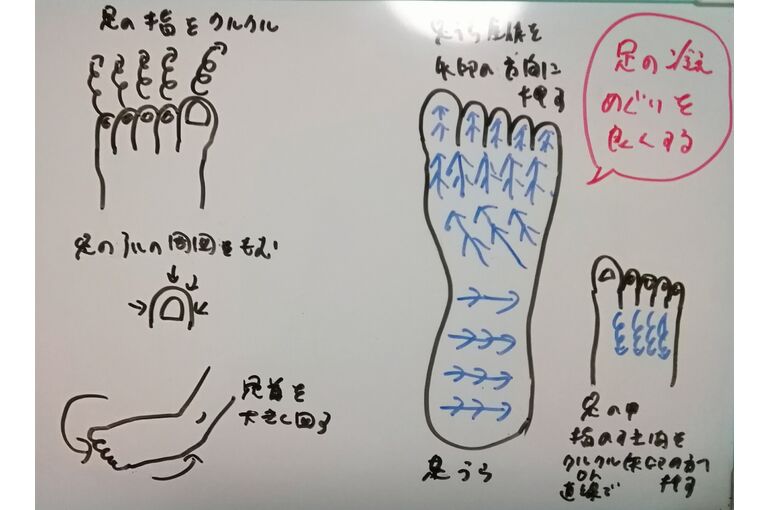 足の指をクルクル
足うら全体を
矢印の方向に
押す
足の冷え
めぐりを
良くする
足のツメの周囲をもむ
足首を
大きく回す
足うら
足の甲
指の
クルクル
直線で
押す